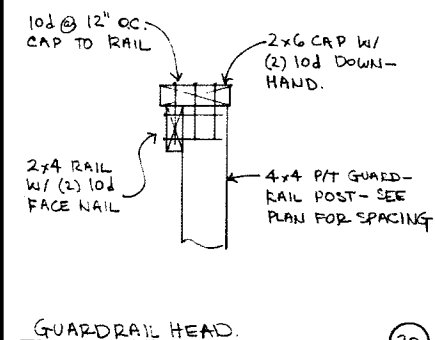 10d @ 12" O.C.
CAP TO RAIL
2x6 CAP W/
(2) 10d DOWN-
HAND.
2x4 RAIL
W/ (2) 10d
FACE NAIL
4x4 P/T GUARD-
RAIL POST - SEE
PLAN FOR SPACING
GUARDRAIL HEAD.